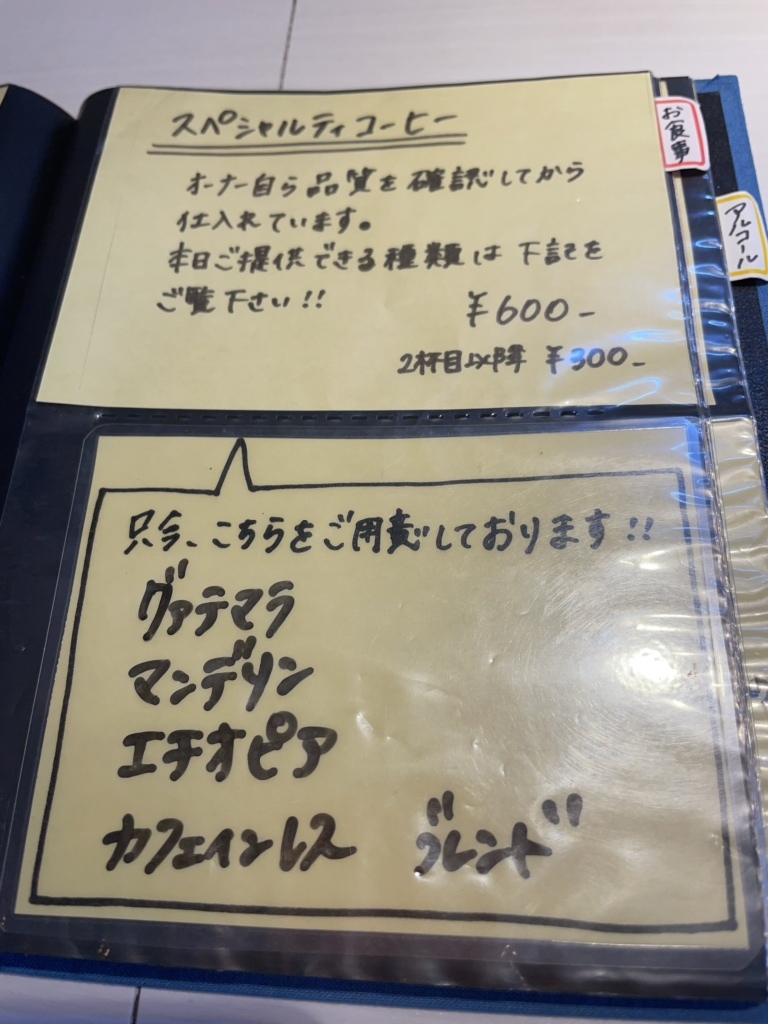 スペシャルティコーヒー
オーナー自ら品質を確認してから
仕入れています。
本日ご提供できる種類は下記を
ご覧下さい!!
¥600-
2杯目以降 ¥300-
お食事
アルコール
只今、こちらをご用意しております!!
グァテマラ
マンデリン
エチオピア
カフェインレス ブレンド